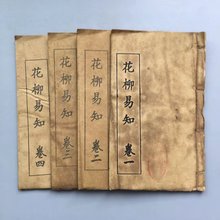 花柳易知
卷一
花柳易知
卷二
花柳易知
卷三
花柳易知
卷四